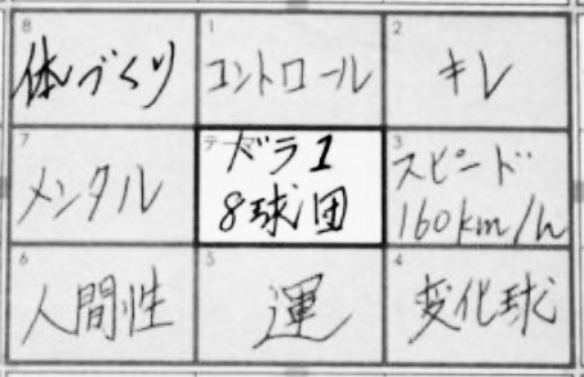 8
体づくり
1
コントロール
2
キレ
7
メンタル
テーマ
ドラ1
8球団
3
スピード
160km/h
6
人間性
5
運
4
変化球